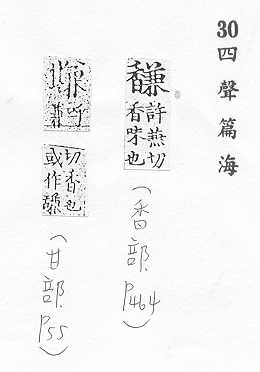 30四聲篇海
馦
許 切
香味也
(香部 P464)
切香也
或作
(甘部 P55)